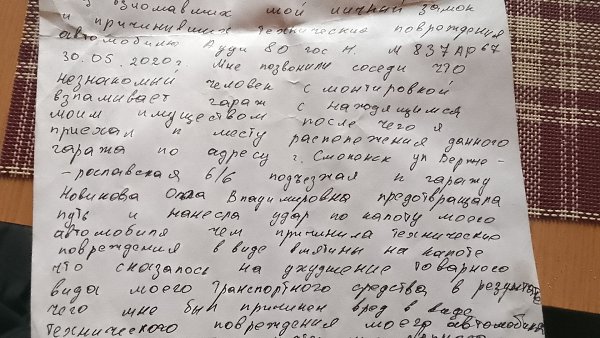 взломавших мой личный замок
и причинивших технические повреждения
автомобилю Ауди 80 гос н. М 837 АР 67
30.05.2020г. Мне позвонили соседи что
незнакомый человек с монтировкой
взламывает гараж с находящимся
моим имуществом после чего я
приехал к месту расположения данного
гаража по адресу г. Смоленск ул Верже-
-рославская 6/6 подъезжая к гаражу
Новикова Владимировна предотвращала
путь и нанесла удар по капоту моего
автомобиля чем причинила технические
повреждения в виде вмятины на капоте
что сказалось на ухудшение товарного
вида моего транспортного средства, в результате
чего мне был причинен вред в виде
технического повреждения моего автомобиля